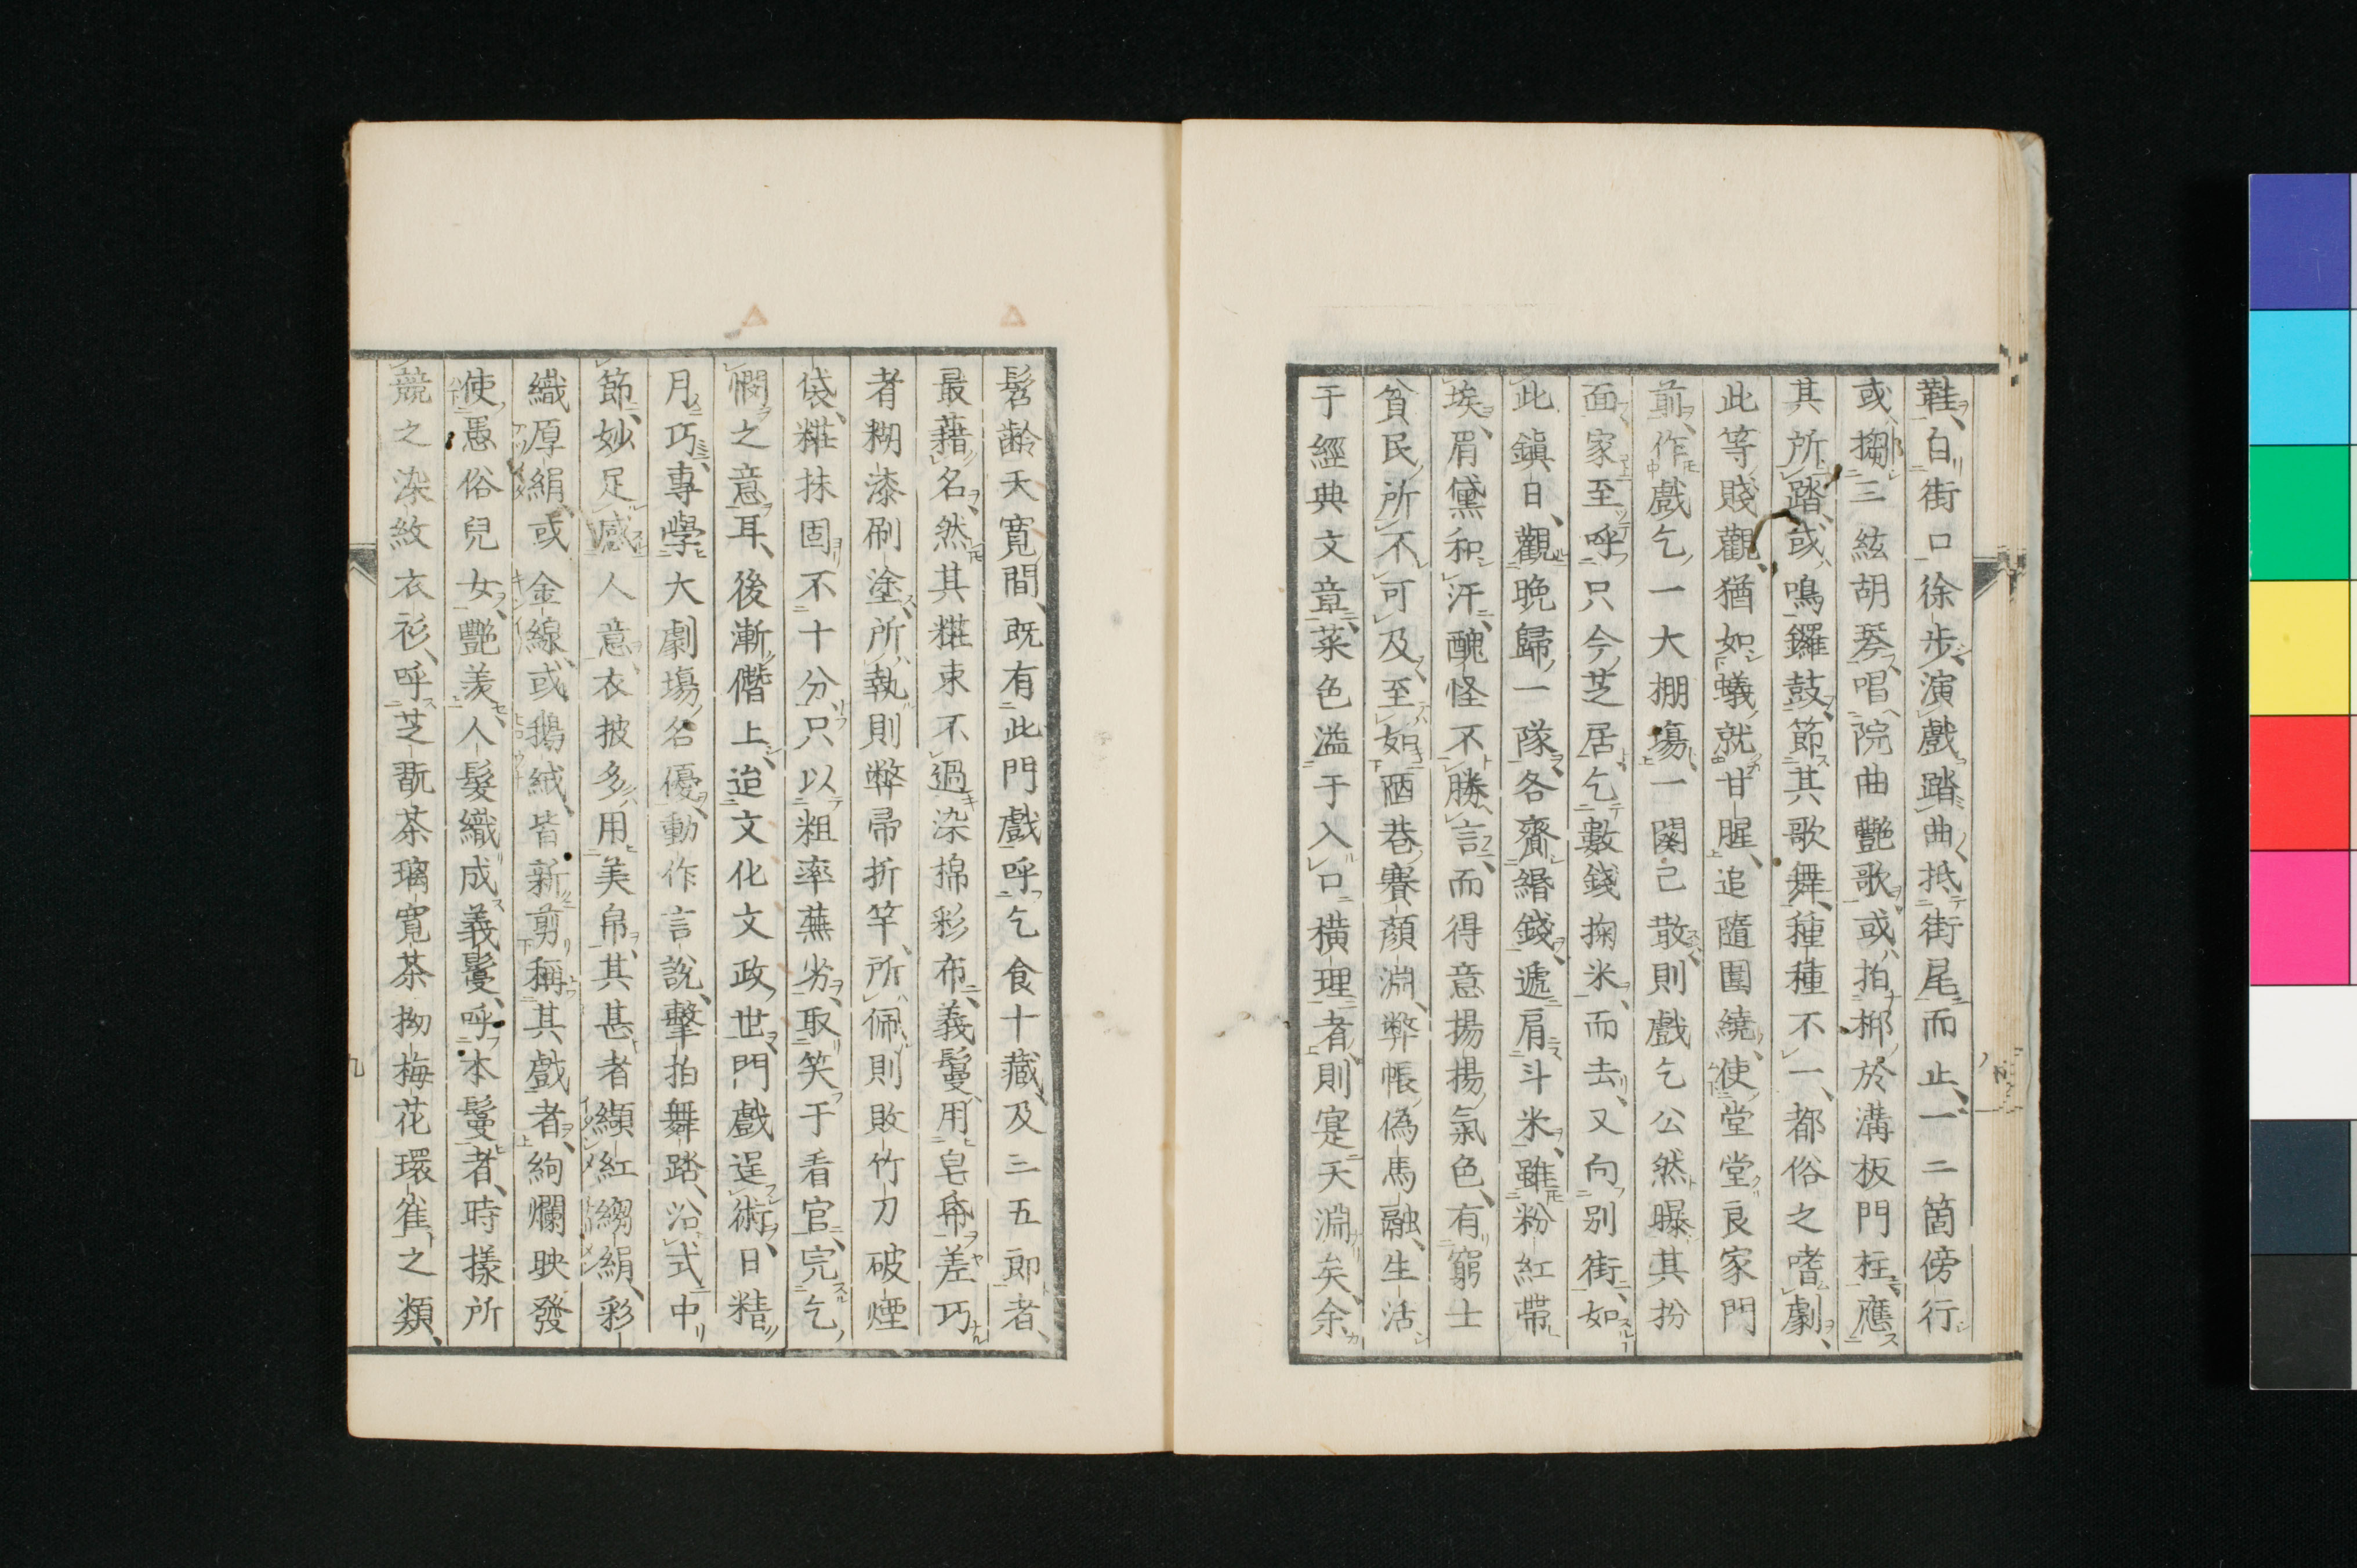 鞋、白街口徐步演戲踏曲抵街尾而止、一二箇傍行
或搊三絃胡琴、唱院曲艷歌、或拍梆於溝板門柱、應
其所踏、或鳴鑼鼓、節其歌舞、種種不一、都俗之嗜劇、
此等賤觀、猶如蟻就甘腥、追隨圍繞、使堂堂良家門
前、作戲乞一大棚塲、一闋已散、則戲乞公然曝其扮
面、家至呼只今芝居、乞數錢掬米、而去、又向別街、如
此鎭日、觀晩歸一隊、各齎緡錢、遞肩斗米、雖粉紅帶
埃、眉黛和汗、醜怪不勝言、而得意揚揚氣色、有窮士
貧民所不可及、至如陋巷賽顏淵、弊帳僞馬融、生活
于經典文章、菜色溢于入口橫理者、則寔天淵矣、余
髫齡天寬間、既有此門戲、呼乞食十藏、及三五郎者、
最藉名、然其糚束不過染棉彩布、義鬘、用皂帋、差巧
者糊漆刷塗、所執則弊帚折竿、所佩則敗竹刀破煙
袋、糚抹固不十分、只以粗率蕪劣、取笑于看官、完乞
憫之意耳、後漸僭上、迨文化文政世、門戲逞術、日精
月巧、專學大劇塲名優、動作言說、擊拍舞踏、沿式中
節、妙足感人意、衣披多用美帛、其甚者纈紅縐絹、彩
織厚絹、或金線、或鵝絨、皆新剪、稱其戲者、絢爛映發
使愚俗兒女、艷羨、人髮織成義鬘、呼本鬘者、時樣所
競之染紋衣衫、呼芝翫茶璃寬茶拗梅花環雀、之類、
九